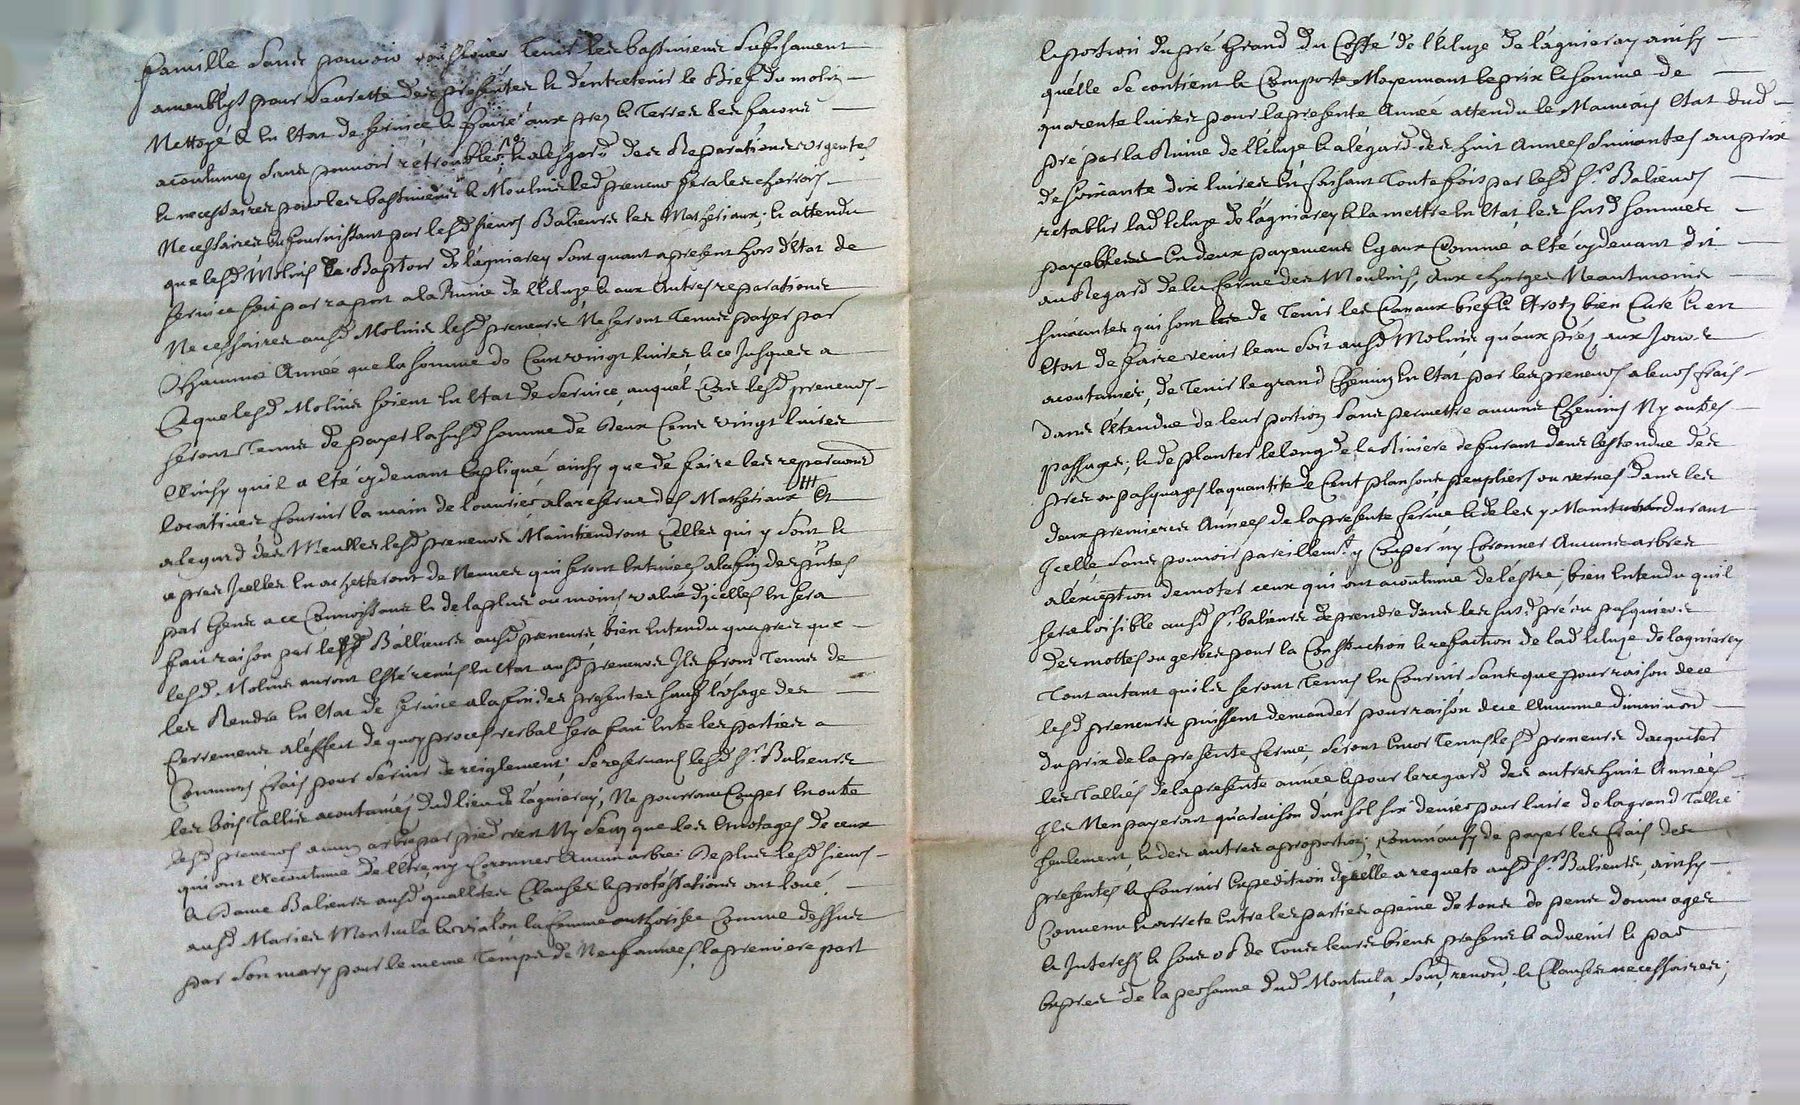 famille sans pouvoir Tenir les bastiments sufisament
amenblys pour seurette des presentes & d'entretenir le Bief du molin
Nettoyé & en Etat de service & faire aux prez & Terres les facons
acoutumes sans pouvoir & alesgard des Reparations urgentes
& necessaires pour les bastiments & Moulins lesd preneurs fera les charrois
Necessaires en fournissant par lesd sieurs Balieurs les Matheriaux; & attendu
que lesd Molins & Baptoir de l'agniarey sont quant a present hors d'Etat de
service soit par raport a la Ruine de l'Ecluze & aux Autres reparations
Necessaires ausd Molins lesd preneurs Ne seront Tenus payer par
Chaiune Année que la somme de Cent vingt livres & ce Jusques a
Ce que lesd Molins soient en Etat de service, auquel Cas lesd preneurs
seront Tenus de payer la susd somme de Deux Cens vingt livres
Ainsy qu'il a eté cydevant Expliqué, ainsy que de faire les reparaons
locatives fournir la main de l'ouvrier a la reserve des Matheriaux Et
alegard des Meulles lesd preneurs Maintiendront Celles qui y sont &
apres Jcelles en achetteront de Neuves qui seront Estimées a la fin des pntes
par Gens a ce Connoissant & de la plus ou moins value d'jcelles en sera
fait raison par lesd Ballieurs ausd preneurs, bien Entendu quapres que
lesd Molins auront Esté remis en Etat ausd preneurs Ils seront Tenus de
les Rendre en Etat de service a la fin des presentes sauf l'vsage des
ferrements a l'effect de quoy proces verbal sera fait entre les parties a
Communs frais pour servir de reiglement; se reservant lesd Srs Balieurs
les bois Tallis acoutumés dud lieu de l'agniarey, Ne pourront Couper en outre
lesd preneurs aucun arbre par pied vert Ny secq que les Emotages de ceux
qui ont accoutume de l'Etre, ny Coronner Aucun arbre: De plus lesd sieurs
& Dame Balieurs ausd quallites Clauses & protestations ont loué
ausd Maries Montula & vialon la femme authorisée Comme dessus
par son mary pour le meme Temps de Neuf années, la premiere part
& portion du pré Grand du Costé de l'Ecluze de l'agniarey ainsy
qu'elle se contient & Comporte Moyennant le prix & somme de
quarente livres pour la presente Année attendu le Mauvais Etat dud
pré par la Ruine de l'Ecluze & a l'égard des huit Années suivantes au prix
de soixante dix livres En faisant Toute fois par lesd Srs Balieurs
retablir lad Ecluze de l'agniarey & la mettre en Etat, les susd sommes
payables en deux payements Egaux Comme a eté cydevant dit
au Regard de la ferme des Moulins, Aux charges Neantmoins
suivantes qui sont de Tenir les Canaux biefs & bien Cure & en
Etat de faire venir l'eau soit ausd Molins qu'aux prés, aux Jours
acoutumés, de Tenir le grand Chemin en Etat par les preneurs a leurs frais
dans l'étendue de leur portion sans permettre aucuns Chemins Ny autres
passages; & de planter le long de la Riviere de furant dans l'estendue des
pres ou pasquages la quantité de Cent plansons peupliers ou vernes Dans les
deux premieres Années de la presente ferme & de les y Maintenir durant
Jcelle sans pouvoir pareillemt y Couper ny Coronner Aucuns arbres
a l'exception demoter ceux qui ont acoutume de l'estre; bien Entendu qu'il
sera loisible ausd Srs balieurs de prendre dans les susd pré ou pasquiers
des mottes ou gerbes pour la Construction & refaction de lad Ecluze de lagniarey
Tout autant quils seront Tenus en fournir sans que pour raison de ce
lesd preneurs puissent demander pour raison de ce Aucune diminuon
du prix de la presente ferme; seront Encor Tenus lesd preneurs dacquiter
les Tallies de la presente année & pour le regard des autres huit Années
Jls N'en payeront qu'a raison d'un sol six deniers pour livre de la grand Tallie
seulement, & des autres a proportion; Comme aussy de payer les frais des
presentes & fournir Expedition d'jcelle a requete ausd Srs Balieurs, ainsy
Convenu & arreté Entre les parties a peine de tous de pens dommages
& Interests & sous ob de Tous leurs biens presens & advenir & par
Expres de la personne dud Montula, soud, renond, & Clauses necessaires;